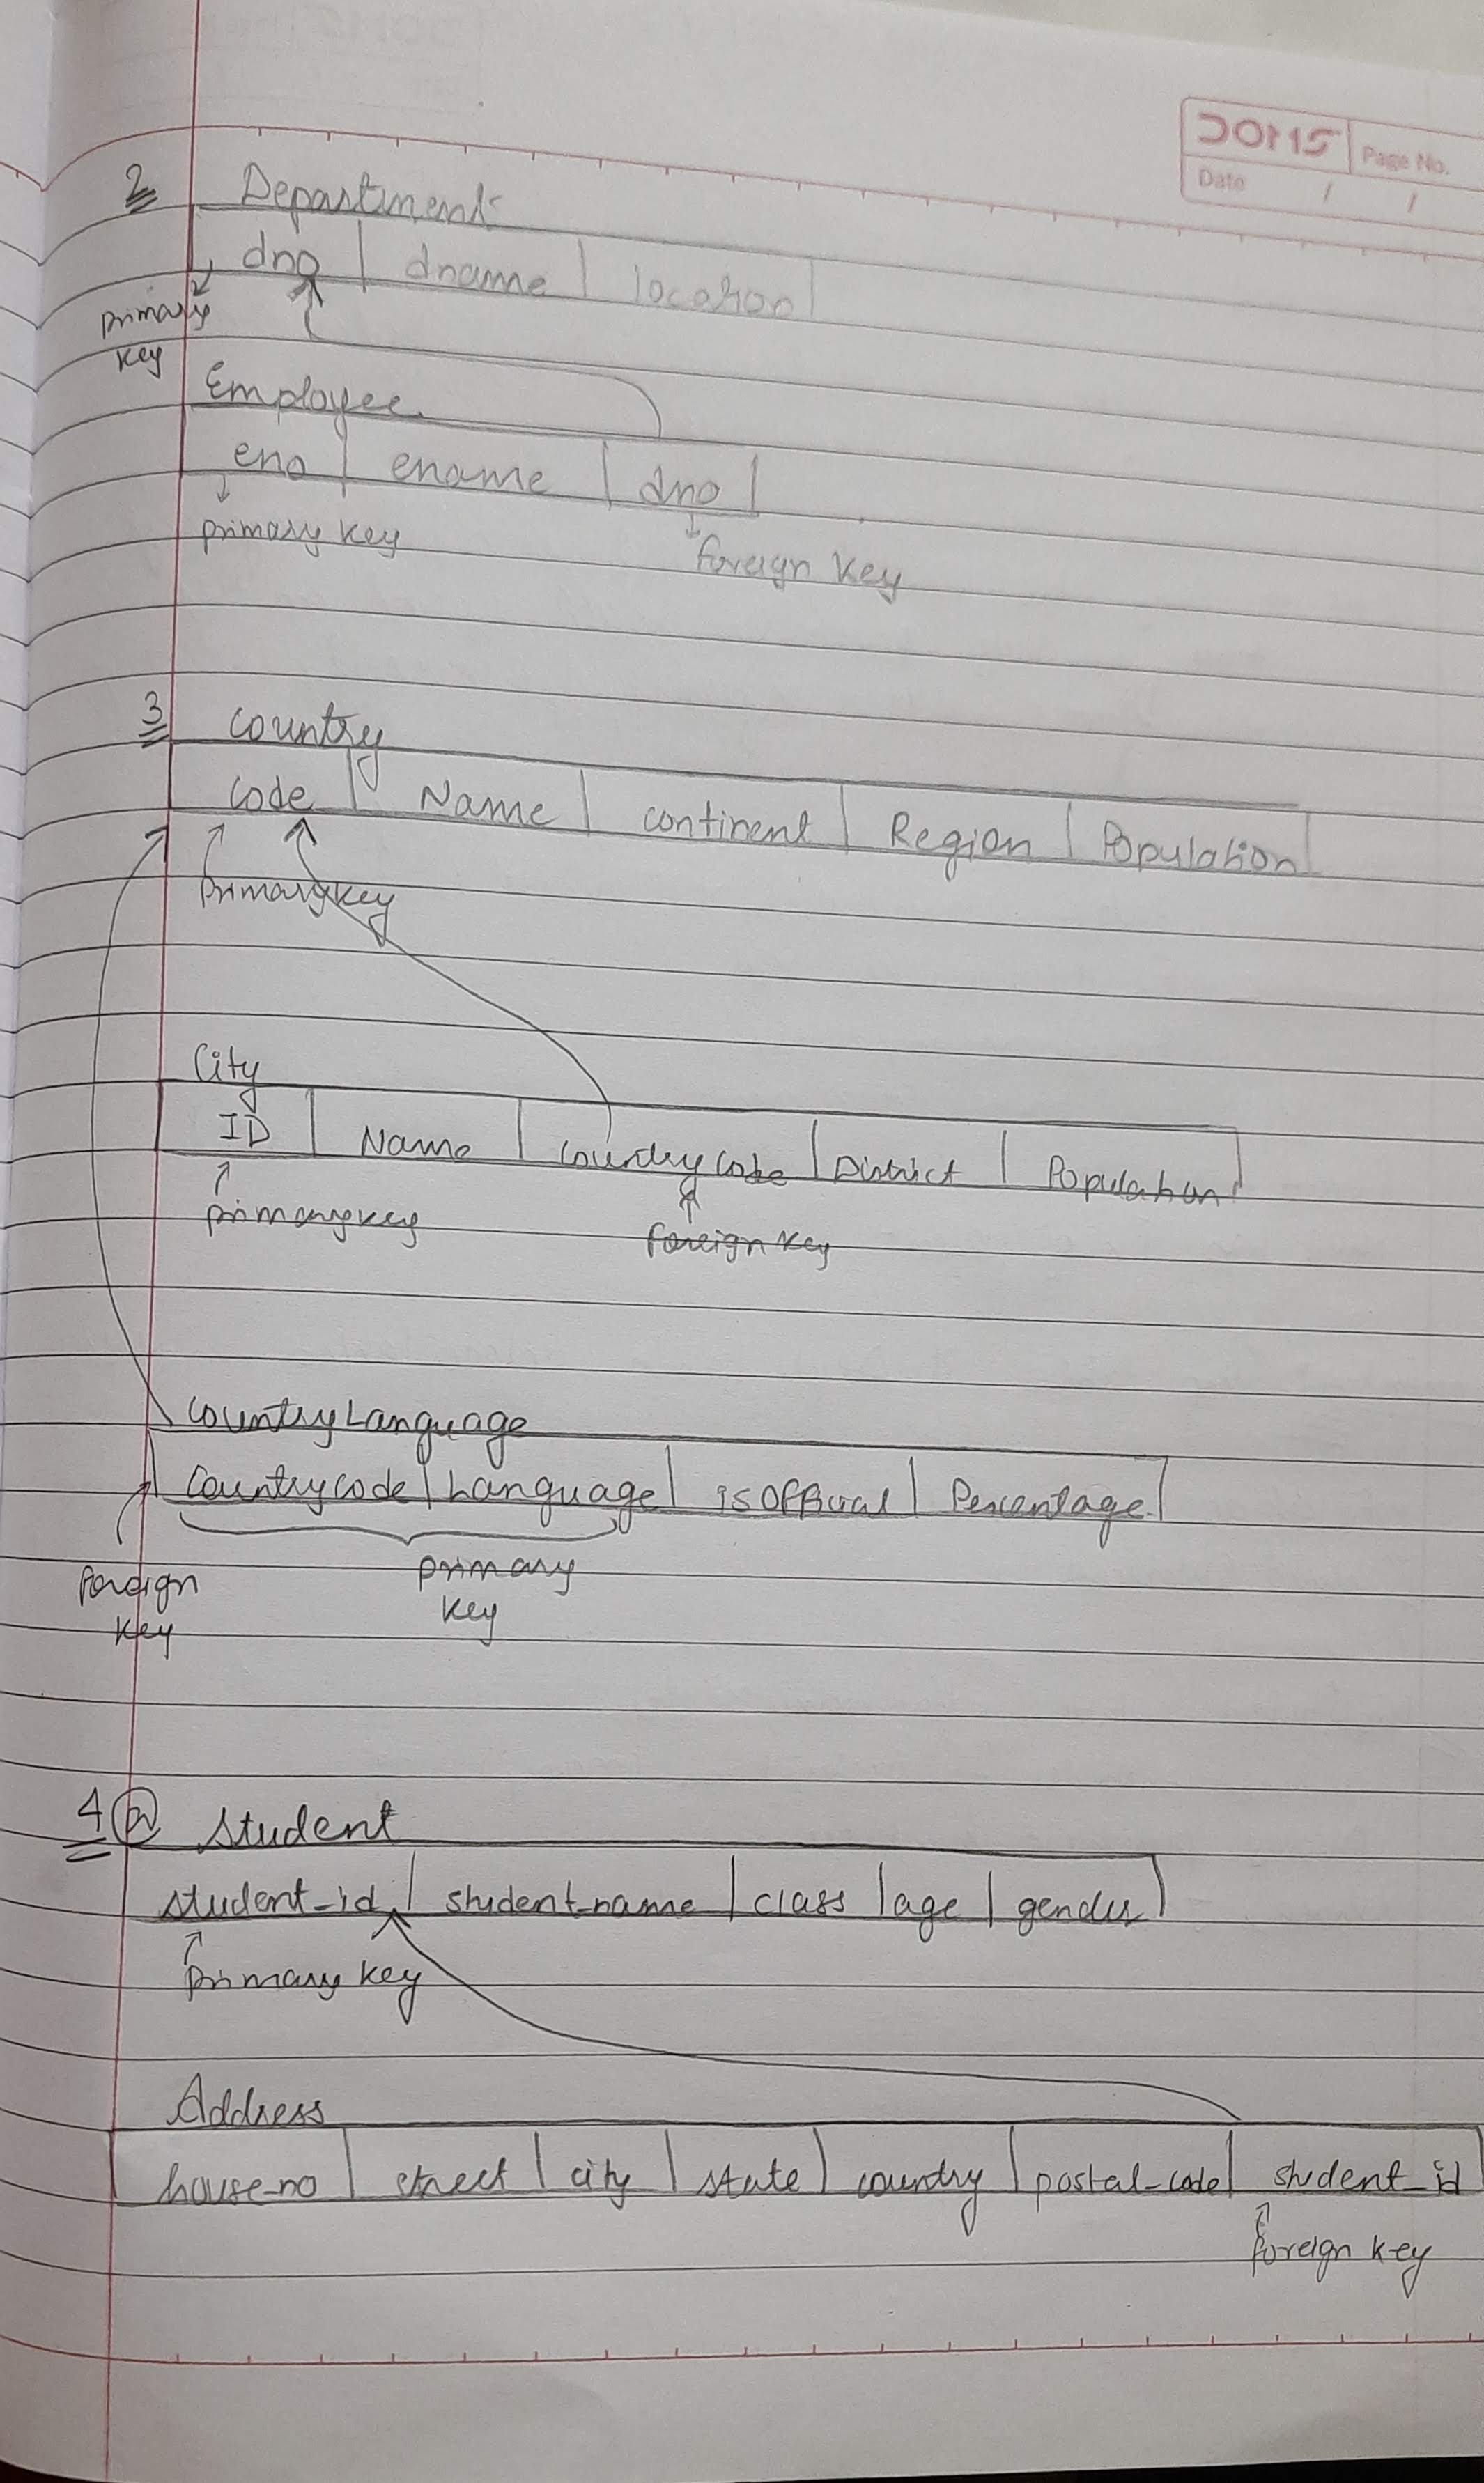 DOMS Page No.
Date / /
2 Department
dno dname location
primary
key
Employee
eno ename dno
primary key foreign key
3 Country
Code Name continent Region Population
primary key
City
ID Name Countrycode District Population
primary key foreign key
CountryLanguage
Countrycode Language isOfficial Percentage
foreign key
primary key
4 a Student
student_id student_name class age gender
primary key
Address
house_no street city state country postal_code student_id
foreign key